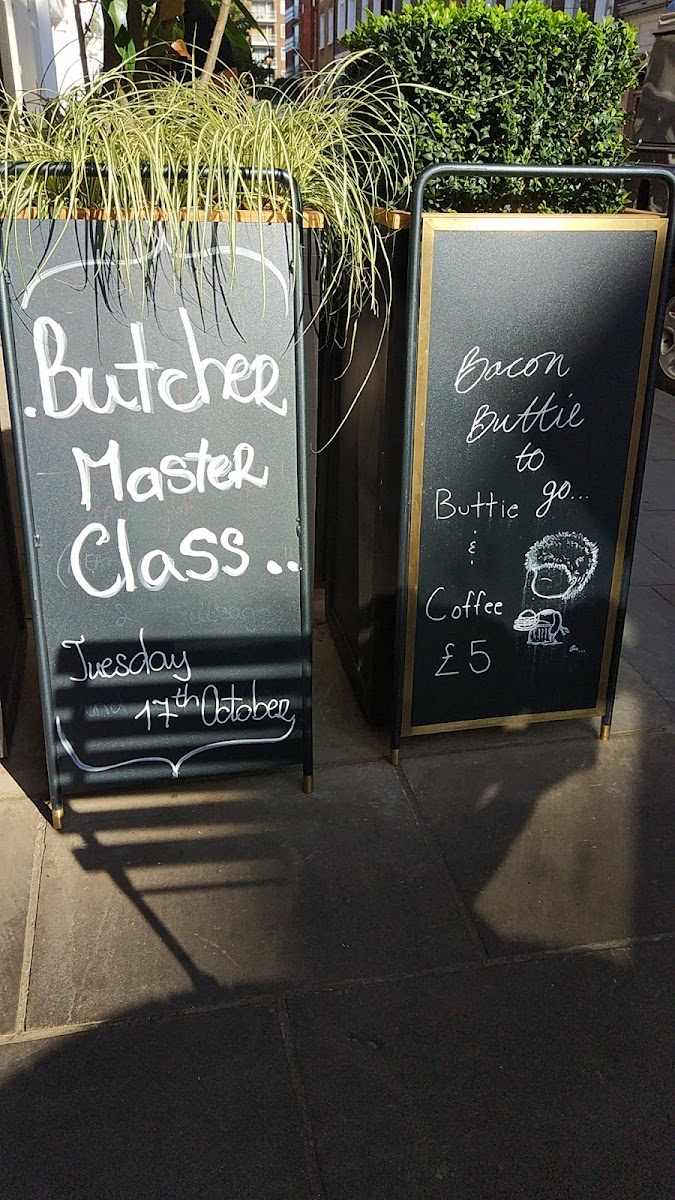 .Butcher
Master
Class..
Tuesday
17th October
Bacon
Buttie
to
go...
Buttie
&
Coffee
£5